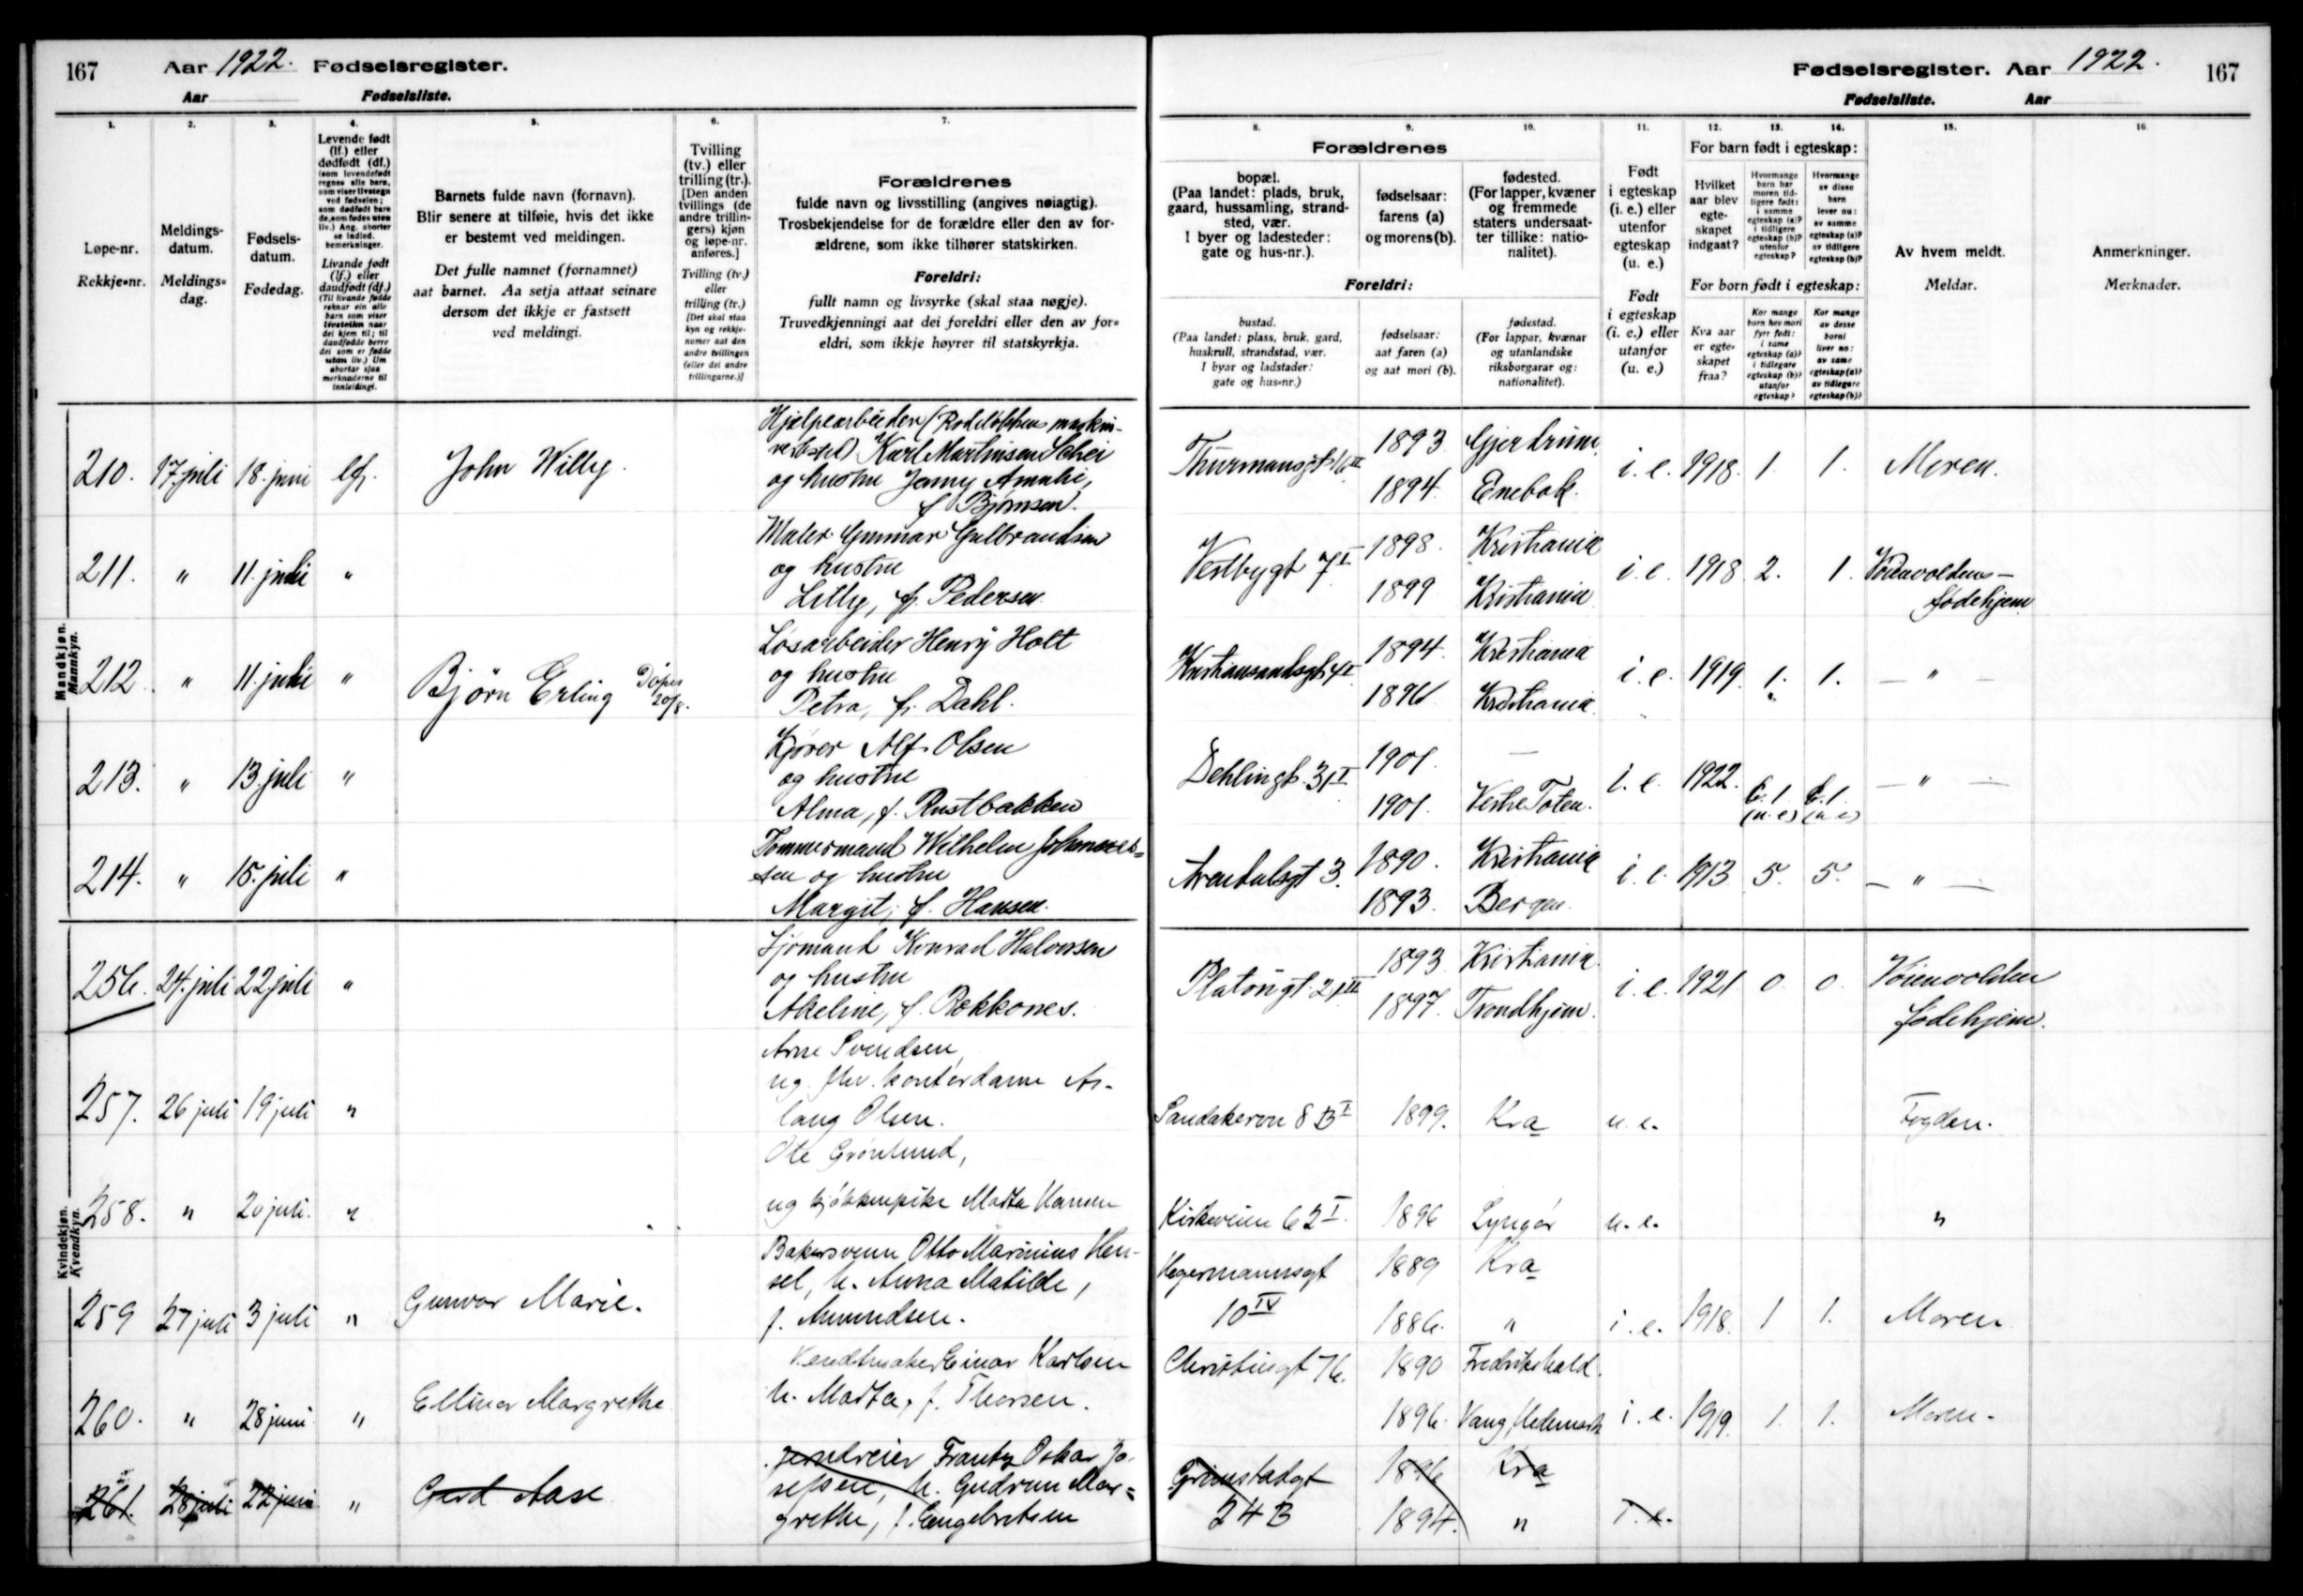 167 Aar 1922. Fødselsregister.
Aar Fødselsliste.
Fødselsregister. Aar 1922. 167
Fødselsliste. Aar
1. 2. 3. 4. 5. 6. 7.
Løpe-nr.
Rekkje-nr.
Meldings-
datum.
Meldings-
dag.
Fødsels-
datum.
Fødedag.
Levende født
(lf.) eller
dødfødt (df.)
(som levendefødt
regnes alle barn,
som viser livstegn
ved fødselen;
som dødfødt bare
de, som fødes uten
liv.) Ang. aborter
se indled.
bemerkninger.
Livande født
(lf.) eller
daudfødt (df.)
(Til livande fødde
reknar ein alle
barn som viser
livsteikn naar
dei kjem til; til
daudfødde berre
dei som er fødde
utan liv.) Um
abortar sjaa
merknaderne til
innleidingi.
Barnets fulde navn (fornavn).
Blir senere at tilføie, hvis det ikke
er bestemt ved meldingen.
Det fulle namnet (fornamnet)
aat barnet. Aa setja attaat seinare
dersom det ikkje er fastsett
ved meldingi.
Tvilling
(tv.) eller
trilling (tr.).
[Den anden
tvillings (de
andre trillin-
gers) kjøn
og løpe-nr.
anføres.]
Tvilling (tv.)
eller
trilling (tr.)
[Det skal staa
kyn og rekkje-
numer aat den
andre tvillingen
(eller dei andre
trillingarne.)]
Forældrenes
fulde navn og livsstilling (angives nøiagtig).
Trosbekjendelse for de forældre eller den av for-
ældrene, som ikke tilhører statskirken.
Foreldri:
fullt namn og livsyrke (skal staa nøgje).
Truvedkjenningi aat dei foreldri eller den av for-
eldri, som ikkje høyrer til statskyrkja.
8. 9. 10. 11. 12. 13. 14. 15. 16.
Forældrenes
bopæl.
(Paa landet: plads, bruk,
gaard, hussamling, strand-
sted, vær.
I byer og ladesteder:
gate og hus-nr.).
fødselsaar:
farens (a)
og morens (b).
fødested.
(For lapper, kvæner
og fremmede
staters undersaat-
ter tillike: natio-
nalitet).
Foreldri:
bustad.
(Paa landet: plass, bruk, gard,
huskrull, strandstad, vær.
I byar og ladstader:
gate og hus-nr.)
fødselsaar:
aat faren (a)
og aat mori (b).
fødestad.
(For lappar, kvænar
og utanlandske
riksborgarar og:
nationalitet).
Født
i egteskap
(i. e.) eller
utenfor
egteskap
(u. e.)
Født
i egteskap
(i. e.) eller
utanfor
(u. e.)
For barn født i egteskap:
Hvilket
aar blev
egte-
skapet
indgaat?
Hvormange
barn har
moren tid-
ligere født:
i samme
egteskap (a)?
i tidligere
egteskap (b)?
utenfor
egteskap?
Hvormange
av disse
barn
lever nu:
av samme
egteskap (a)?
av tidligere
egteskap (b)?
For born født i egteskap:
Kva aar
er egte-
skapet
fraa?
Kor mange
born hev mori
fyrr født:
i same
egteskap (a)?
i tidlegare
egteskap (b)?
utanfor
egteskap?
Kor mange
av desse
borni
liver no:
av same
egteskap (a)?
av tidlegare
egteskap (b)?
Av hvem meldt.
Meldar.
Anmerkninger.
Merknader.
Mandkjøn.
Mannkyn.
210. 17. juli 18. juni lf. John Willy.
Hjælpearbeider (Rodeløkkens maskin-
verksted) Karl Martinsen Schei
og hustru Jenny Amalie,
f. Bjørnsen.
Thurmannsgt. 16 II 1893 Gjerdrum
1894. Enebak. i. e. 1918. 1. 1. Moren.
211. " 11. juli "
Maler Gunnar Gulbrandsen
og hustru
Lilly, f. Pedersen.
Vestbygt 7 I 1898. Kristiania
1899 Kristiania i. e. 1918 2. 1. Vöienvoldens-
fødehjem
212. " 11. juli " Bjørn Erling Döpt
20/8.
Løsarbeider Henry Holt
og hustru
Petra, f. Dahl.
Kristiansandsgt 4 II 1894. Kristiania
1896 Kristiania. i. e. 1919. 1. 1. — " —
213. " 13. juli "
Kjører Alf Olsen
og hustru
Alma, f. Rustbakken
Dehlingt. 31 I 1901. —
1901. Vestre Toten. i. e. 1922. b. 1. b. 1.
(u. e) (u. e) — " —
214. " 15. juli "
Tømmermand Wilhelm Johannes-
sen og hustru
Margit, f. Hansen.
Arendalsgt 3. 1890. Kristiania
1893. Bergen. i. e. 1913 5. 5. — " —
Kvindekjøn.
Kvendkyn.
256. 24. juli 22 juli "
Sjømand Konrad Halvorsen
og hustru
Akeline, f. Rokkones.
Platöugt. 21 III 1893 Kristiania.
1897. Trondhjem. i. e. 1921 0 0. Vöienvolden
fødehjem.
257. 26 juli 19 juli "
Arne Svendsen,
ug. fhv. kontordame As-
laug Olsen.
Sandakervn 8 B I 1899. Kra u. e. Fogden.
258. " 20 juli. "
Ole Grønlund,
ug kjøkkenpike Marta Hansen
Kirkeveien 62 I. 1896 Lyngör u. e. "
259 27 juli 3 juli " Gunvor Marie.
Bakersvenn Otto Marinius Hen-
sel, h. Anna Matilde,
f. Amundsen.
Hegermannsgt
10 IV 1889 Kra
1886. " i. e. 1918. 1 1. Moren
260. " 28 juni " Ellinor Margrethe
Einar Karlsen
h. Marta, f. Thorsen.
Christiesgt 76. 1890 Fredrikshald.
1896. Vang, Hedemark i. e. 1919. 1. 1. Moren.
261. 28 juli 22 juni " Gerd Aase
Jerndreier Frantz Oskar Jo-
sefsen, h. Gudrun Mar-
grethe, f. Engebretsen
Grimstadgt
24 B 1896 Kra
1894. " i. e.